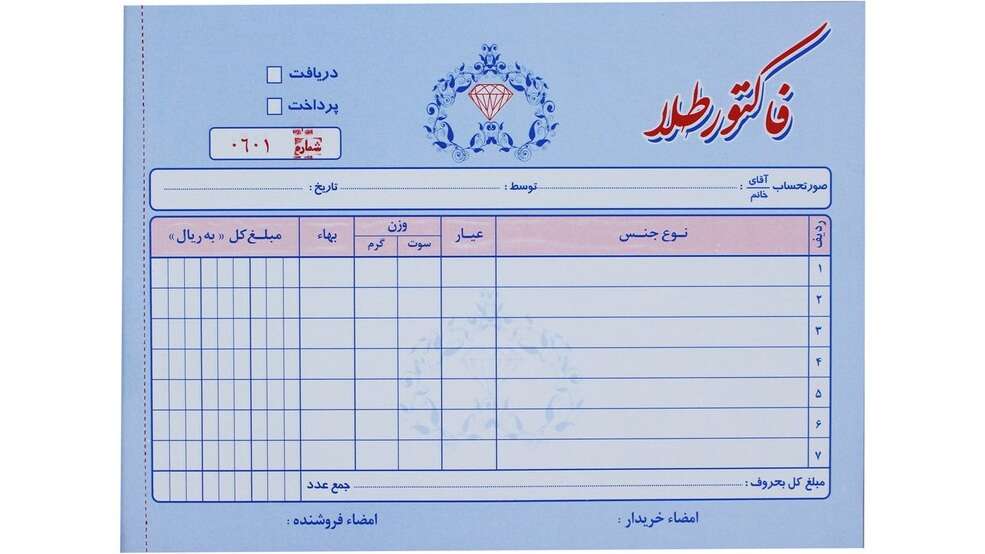 فاکتور طلا
دریافت
پرداخت
شماره ۰۶۰۱
صورتحساب آقای خانم : توسط : تاریخ :
ردیف نوع جنس عیار وزن بهاء مبلغ کل « به ریال »
سوت گرم
۱
۲
۳
۴
۵
۶
۷
مبلغ کل بحروف : جمع عدد
امضاء خریدار : امضاء فروشنده :